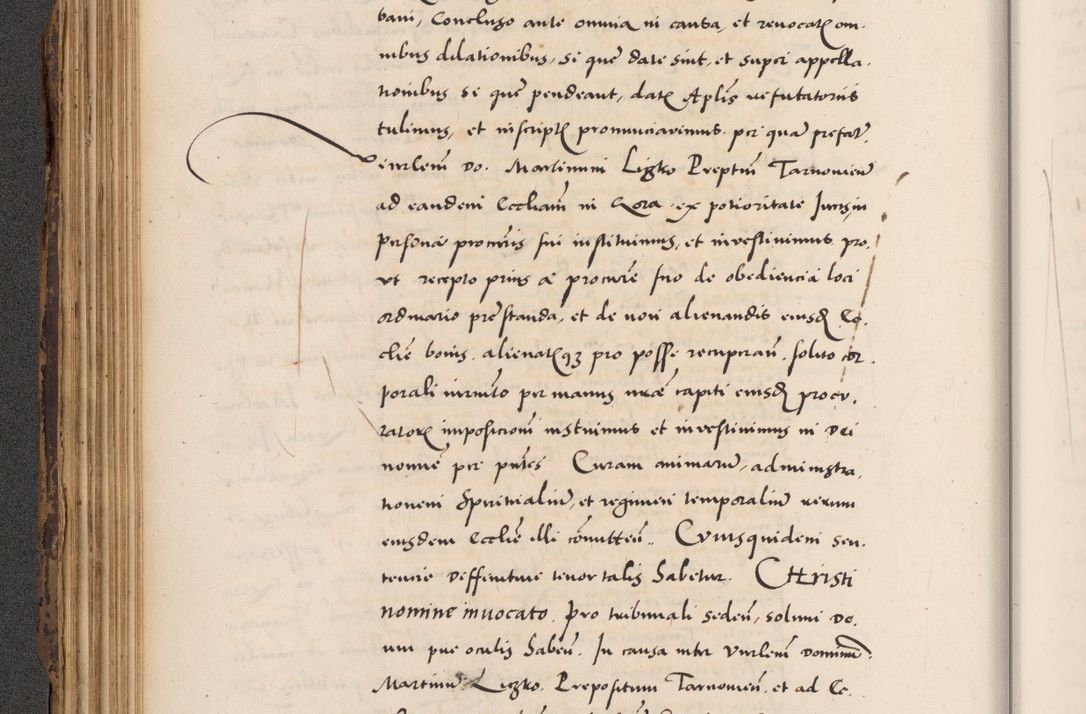 bani, Concluso ante omnia in causa, et revocatꝭ om-
nibus dilationibus, se que date sint, et super appella-
tionibus se que pendeant, datꝭ Aplis refutatoriis
tulimus, et in scriptꝭ pronunciavimus per quã prefatũ
Vnrlem̃ Do. Martinum Ligzko Preptm̃ Tarnovien̄
ad eandem Eccliam in Gora ex potioritate Juris in
persona procuris sui instituimus, et investivimus, pro-
ut recepto prius a procure suo de obediencia loci
ordinario prestanda, et de non alienandis eiusd Ec-
clie bonis, alienatisqȝ pro posse recuperan̄, solito cor-
porali iurnto per manus nrae capiti eiusd procu-
ratorꝭ impositionem instituimus et investivimus in Dei
nomine per pntes Curam animarũ, administra-
tionem Spiritualiũ, et regimen temporaliũ rerum
eiusdem Ecclie illi comitten̄. Cuiusquidem sen-
tencie deffinitive tenor talis habetur. CHristi
nomine invocato, pro tribunali seden̄, solum De-
um pre oculis haben̄. In causa inter Vnrlem̃ Dominũ
Martinũ Ligzko, Prepositum Tarnovien̄, et ad Ec-